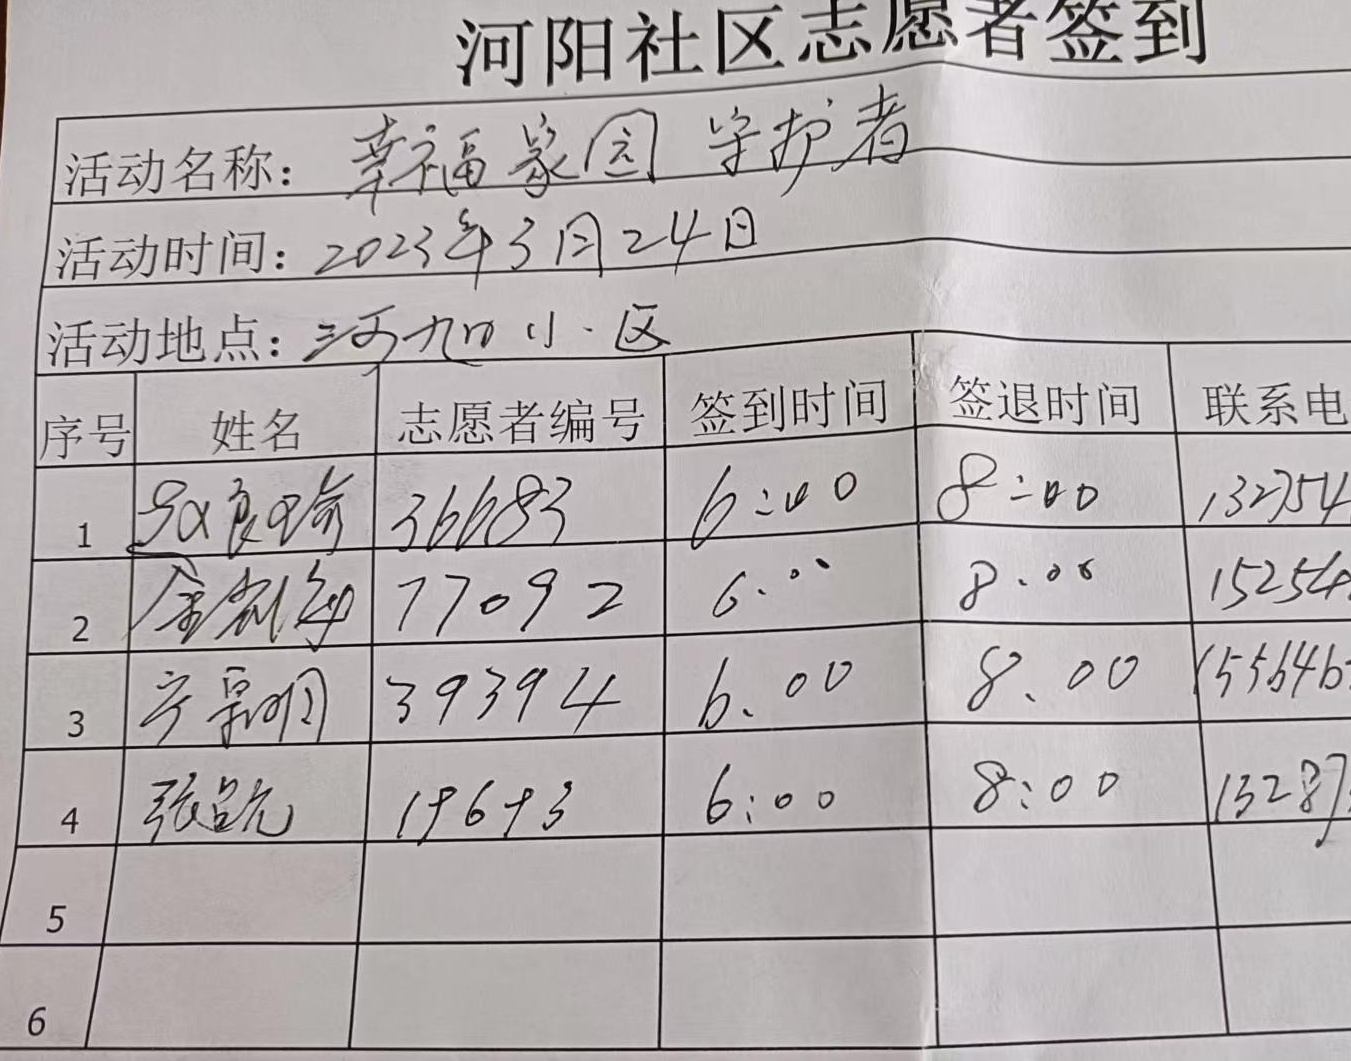 河阳社区志愿者签到
活动名称: 幸福家园 守护者
活动时间: 2023年3月24日
活动地点: 河阳小区
序号 姓名 志愿者编号 签到时间 签退时间 联系电
1 36683 6:00 8:00 132754
2 77092 6:00 8:00 15254
3 39394 6.00 8.00 155646
4 张 6:00 8:00 13287
5
6